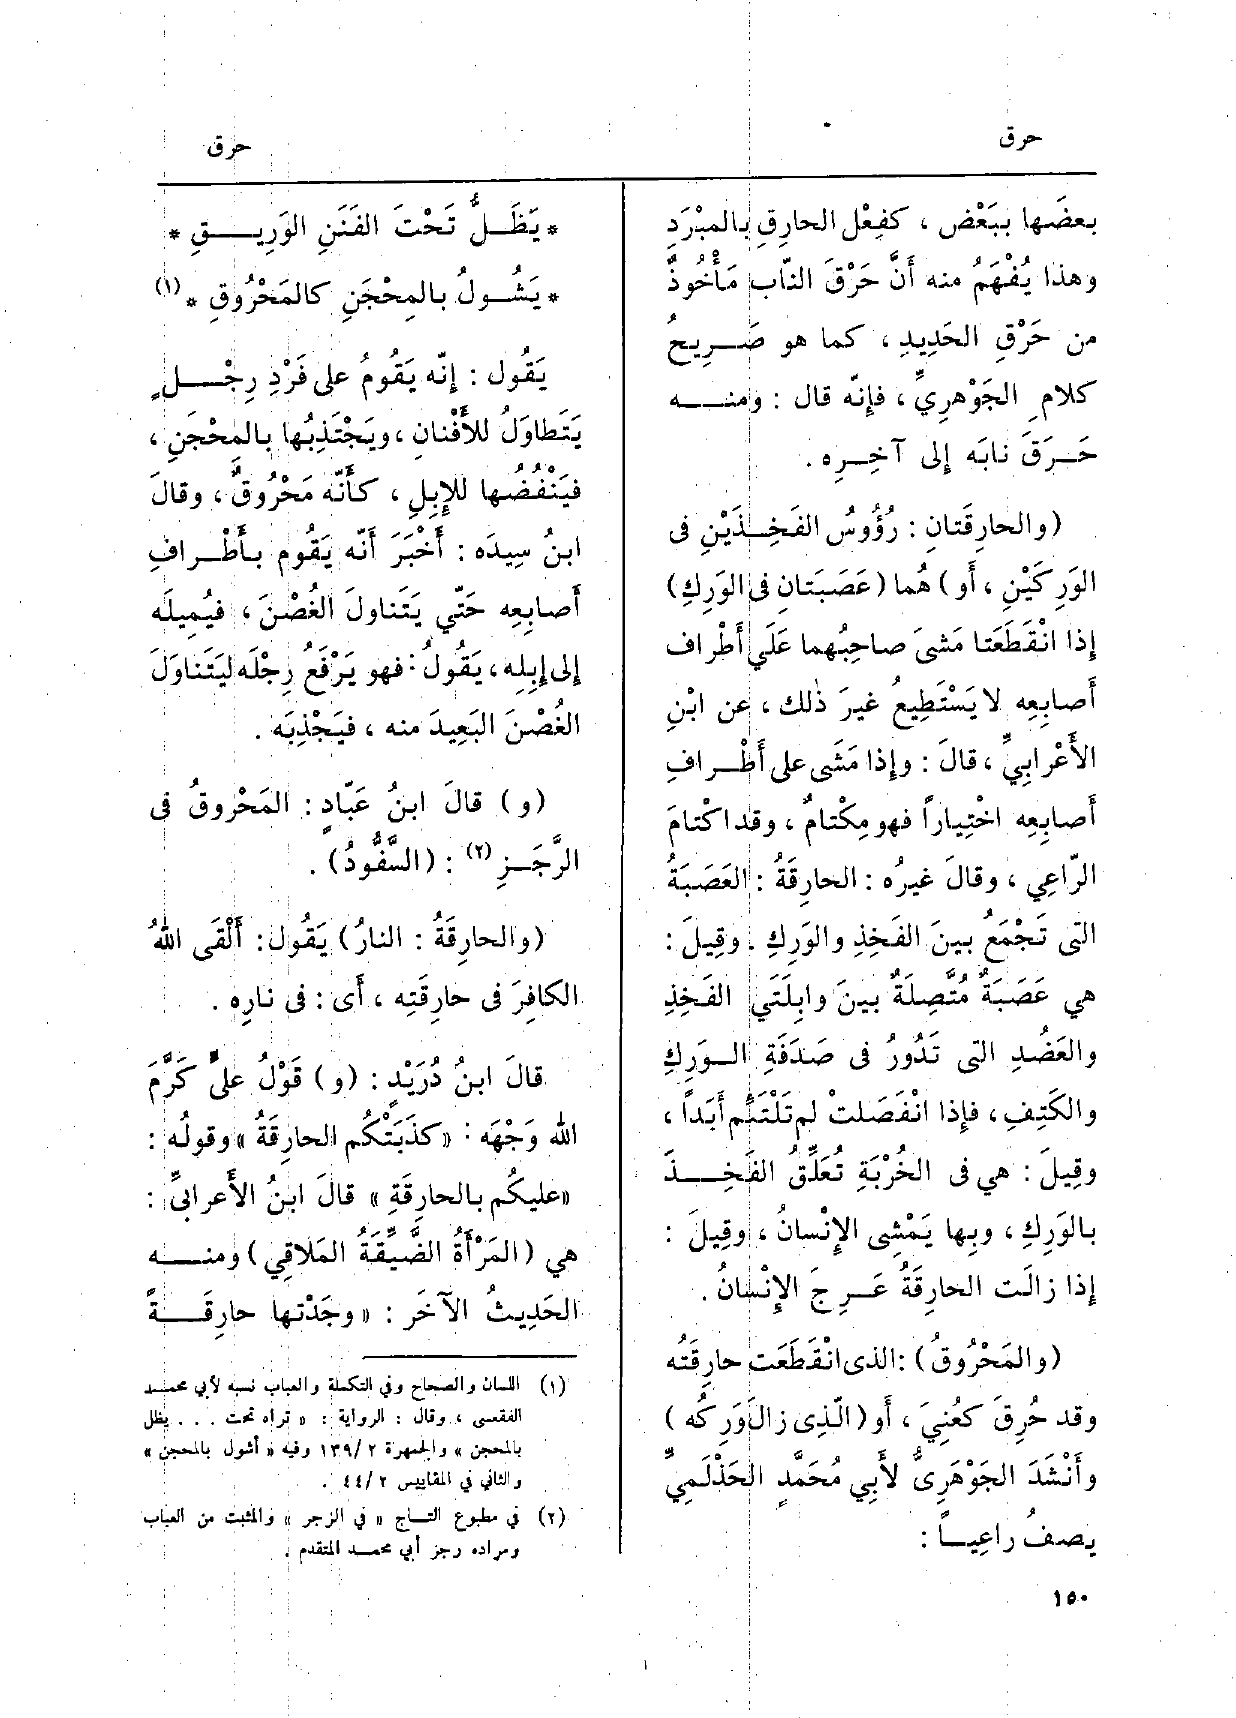 حرق
حرق
بعضَها بِبَعْض ، كفِعْل الحارِقِ بالمِبْرَدِ
وهذا يُفْهَمُ منه أَنَّ حَرْقَ النّابِ مَأْخُوذٌ
من حَرْقِ الحَدِيدِ ، كما هو صَرِيحُ
كلامِ الجَوْهرِيِّ ، فإِنّه قال : ومنه
حَرَقَ نابَه إِلى آخِرِه .
(والحارِقَتانِ : رُؤُوسُ الفَخِذَيْنِ فى
الوَرِكَيْنِ ، أَو) هُما (عَصَبَتانِ فى الوَرِكِ)
إِذا انْقَطَعَتا مَشىَ صاحِبُهما عَلَى أَطْرافِ
أَصابِعِه لا يَسْتَطِيعُ غيرَ ذٰلك ، عن ابْنِ
الأَعْرابِيِّ ، قالَ : وإِذا مَشَى على أَطْرافِ
أَصابِعِه اخْتِياراً فهو مِكْتامٌ ، وقد اكْتامَ
الرّاعِي ، وقالَ غيرُه : الحارِقَةُ : العَصَبَةُ
التى تَجْمَعُ بينَ الفَخِذِ والوَرِكِ . وقِيلَ :
هي عَصَبَةٌ مُتَّصِلَةٌ بينَ وابِلَتَيِ الفَخِذِ
والعَضُدِ التى تَدُورُ فى صَدَفَةِ الوَرِكِ
والكَتِفِ ، فإِذا انْفَصَلتْ لم تَلْتَئِمْ أَبَداً ،
وقِيلَ : هي فى الخُرْبَةِ تُعَلِّقُ الفَخِذَ
بالوَرِكِ ، وبِها يَمْشِى الإِنْسانُ ، وقِيلَ :
إِذا زالَت الحارِقَةُ عَرِجَ الإِنْسانُ .
(والمَحْرُوقُ) :الذى انْقَطَعَت حارِقَته
وقد حُرِقَ كعُنِيَ ، أَو (الّذِى زالَ وَرِكُه )
وأَنْشَدَ الجَوْهَرِىُّ لأَبِي مُحَمَّدٍ الحَذْلَمِيِّ
يصفُ راعِياً :
* يَظَلُّ تَحْتَ الفَنَنِ الوَرِيقِ *
* يَشُولُ بالمِحْجَنِ كالمَحْرُوقِ * (١)
يَقُول : إِنّه يَقُومُ على فَرْدِ رِجْلٍ
يَتَطاوَلُ للأَفْنانِ ، ويَجْتَذِبُها بالمِحْجَنِ ،
فيَنْفُضُها للإِبِلِ ، كأَنّه مَحْرُوقٌ ، وقالَ
ابنُ سِيدَه : أَخْبَرَ أَنّه يَقُوم بأَطْرافِ
أَصابِعِه حَتّى يَتَناولَ الغُصْنَ ، فيُمِيلَه
إِلى إِبِلِه، يَقُولُ: فهو يَرْفَعُ رِجْلَه لِيَتَناوَلَ
الغُصْنَ البَعِيدَ منه ، فيَجْذِبَه .
(و) قالَ ابنُ عَبّادٍ : المَحْرُوقُ فى
الرَّجَزِ (٢) : (السَّفُّودُ) .
(والحارِقَةُ : النارُ) يَقُول: أَلْقَى اللهُ
الكافِرَ فى حارِقَتِه ، أَى : فى نارِه .
قالَ ابنُ دُرَيْدٍ : (و) قَوْلُ علىٍّ كَرَّمَ
الله وَجْهَه : « كذَبَتْكُم الحارِقَةُ » وقولُه :
«عليكُم بالحارِقَةِ » قالَ ابنُ الأَعرابىِّ :
هي (المَرْأَةُ الضَّيِّقَةُ المَلاقِي) ومنه
الحَدِيثُ الآخَر : « وجَدْتها حارِقَةً
(١) اللسان والصحاح وفي التكملة والعباب نسبه لأبي محمد
الفقعسى ، وقال : الرواية : « تراه تحت . . . يظل
بالمحجن » والجمهرة ١٣٩/٢ وفيه « أشول بالمحجن »
والثاني في المقاييس ٤٤/٢ .
(٢) في مطبوع التاج « في الزجر » والمثبت من العباب
ومراده رجز أبي محمد المتقدم .
١٥٠